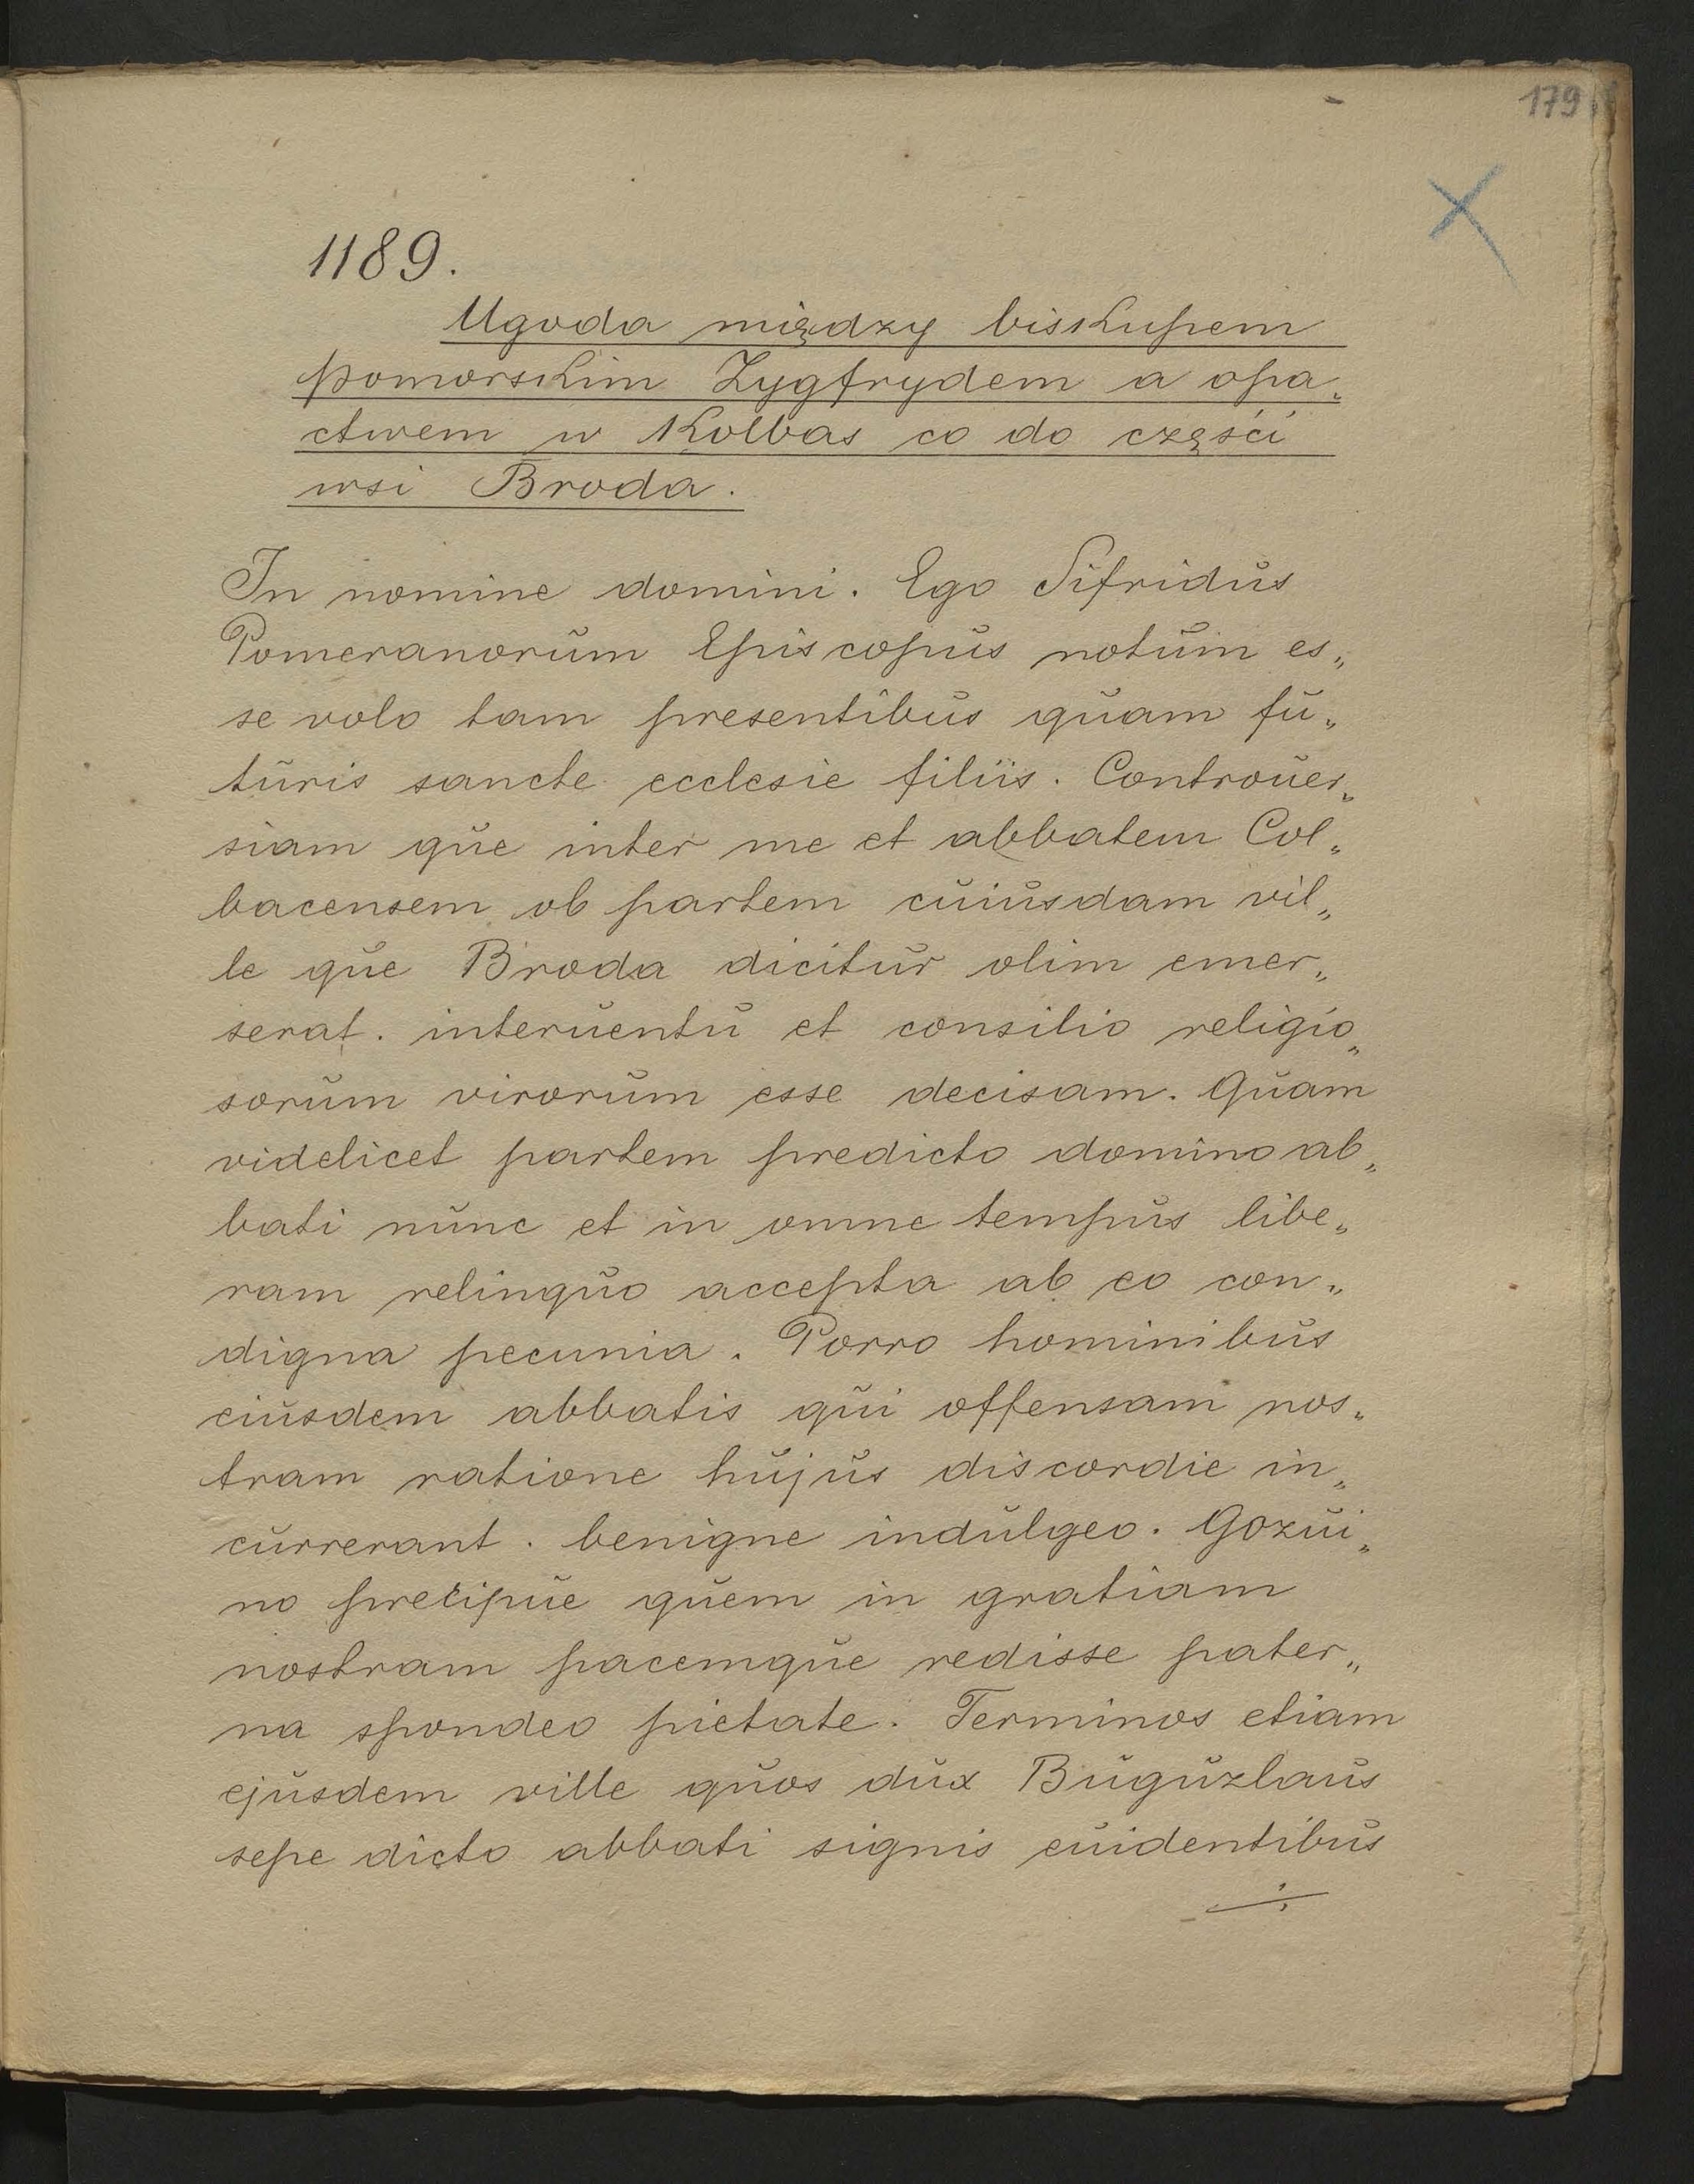 179
1189.
Ugoda między biskupem
pomorskim Zygfrydem a opa„
ctwem w Kolbas co do części
wsi Broda.
In nomine domini. Ego Sifridus
Pomeranorum Episcopus notum es„
se volo tam presentibus quam fu„
turis sancte ecclesie filiis. Controuer„
siam que inter me et abbatem Col„
bacensem ob partem cuiusdam vil„
le que Broda dicitur olim emer„
serat. interuentu et consilio religio„
sorum virorum esse decisam. Quam
videlicet partem predicto domino ab„
bati nunc et in omne tempus libe„
ram relinquo accepta ab eo con„
digna pecunia. Porro hominibus
eiusdem abbatis qui offensam nos„
tram ratione hujus discordie in„
currerant. benigne indulgeo. Gozui„
no precipue quem in gratiam
nostram pacemque redisse pater„
na spondeo pietate. Terminos etiam
ejusdem ville quos dux Buguzlaus
sepe dicto abbati signis euidentibus